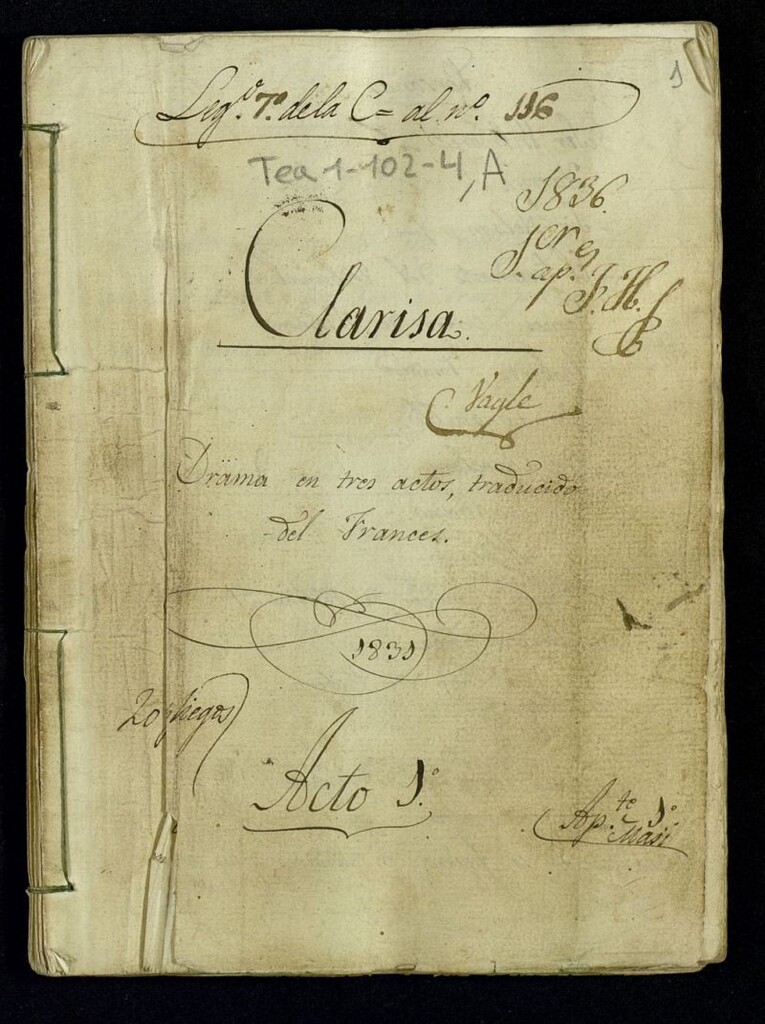 1
Leg.º 7.º de la C= al nº. 116
Tea 1-102-4, A
1836.
ap.
J. H.
Clarisa.
Drama en tres actos, traducido
del Frances.
1831
20 pliegos
Acto 1.º
Ap.te 1.º